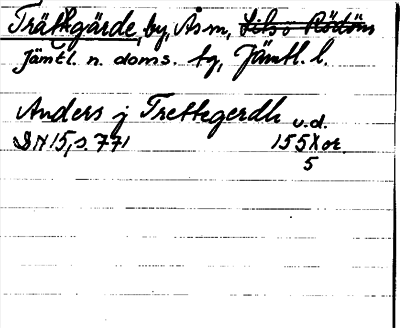 Trättgärde, by, Åsm, Lits o Rödöns
Jämtl. n. doms. tg, Jämtl. l.
Anders j Trettegerdh u.d.
DN 15, s. 771 155X or.
5